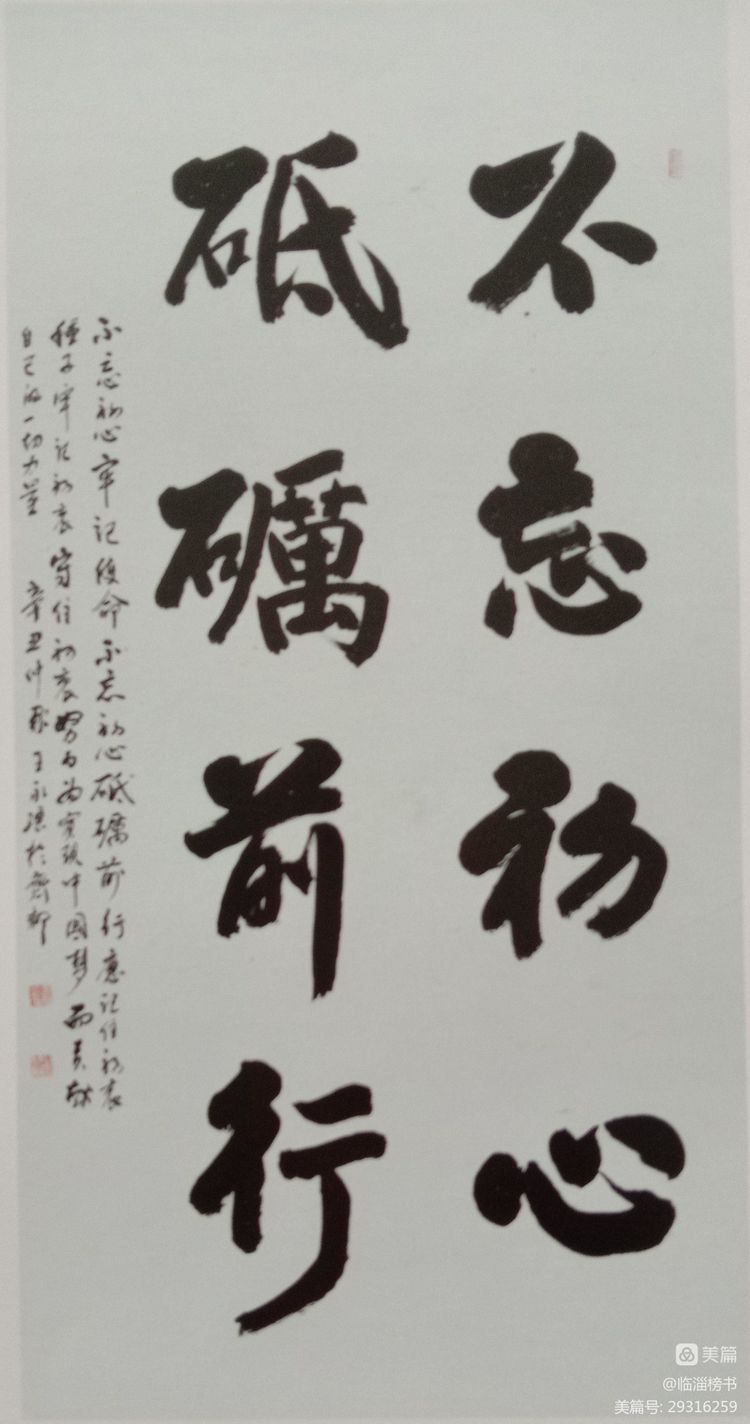 不忘初心
砥礪前行
不忘初心牢记使命不忘初心砥礪前行应记住初衷
种子牢记初衷守住初衷努力为实现中国梦而贡献
自己的一切力量 辛丑仲秋王永 於齊都
美篇
@临淄榜书
美篇号: 29316259